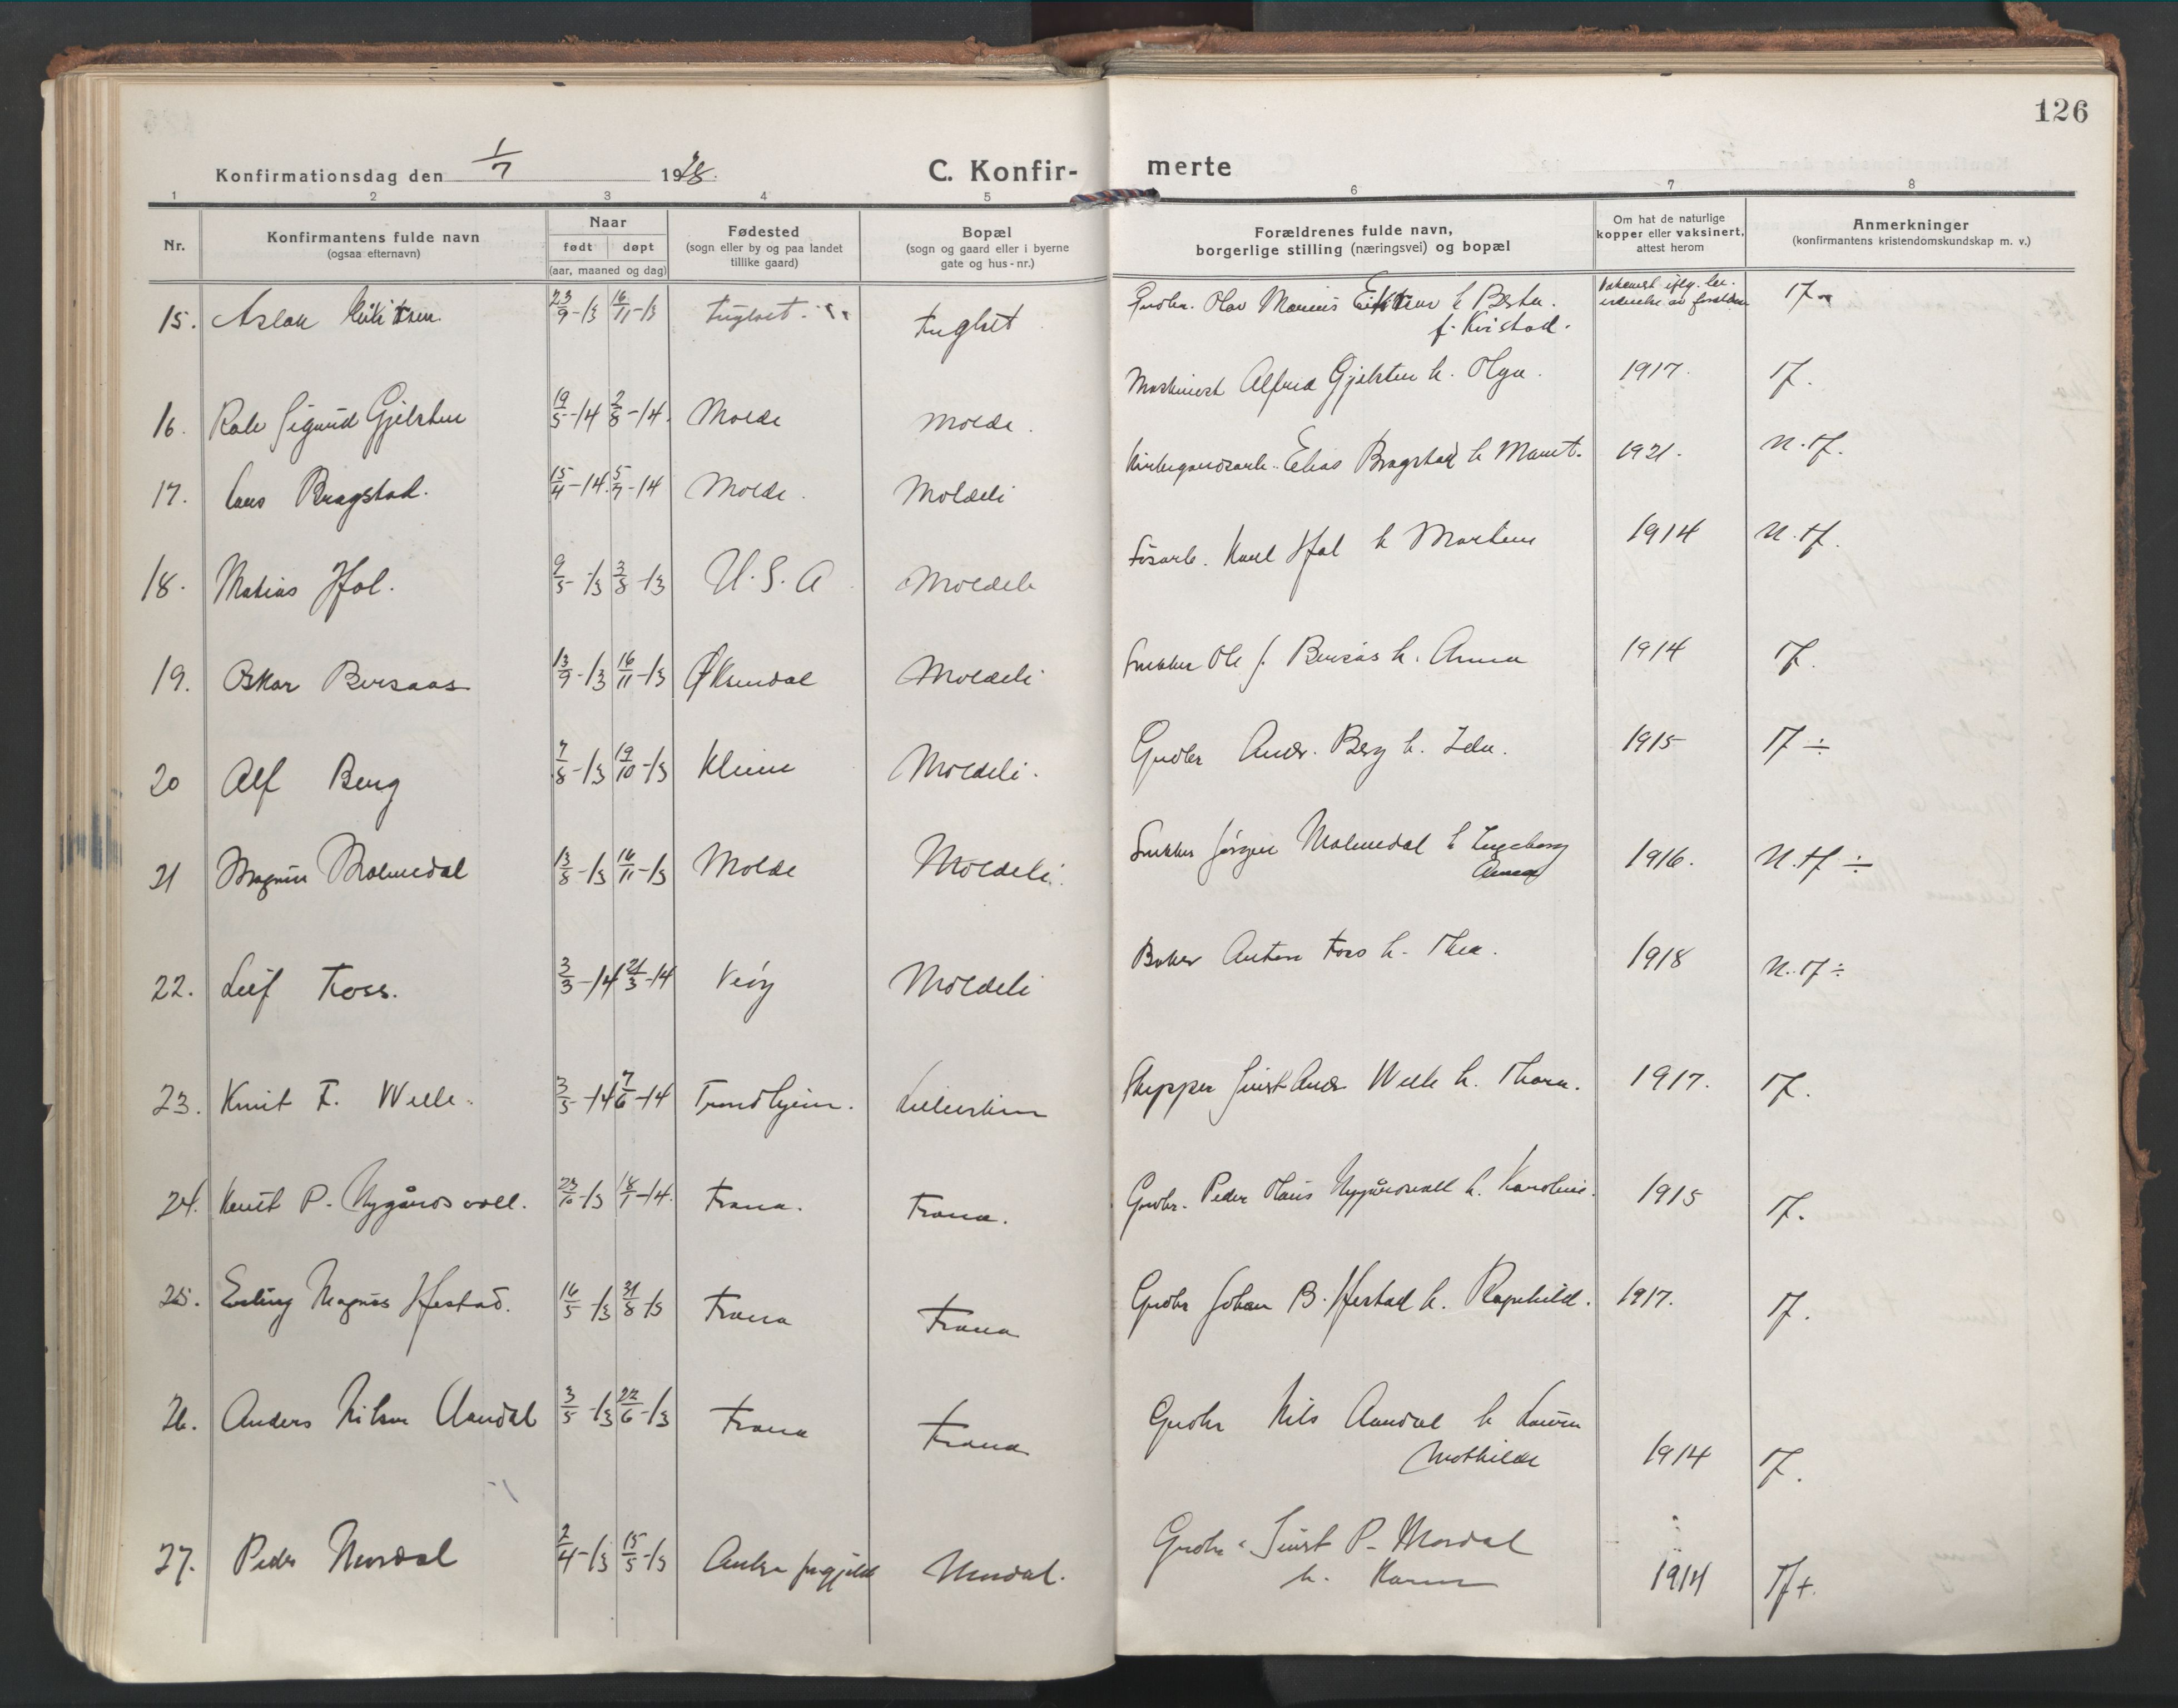 126
Konfirmationsdag den 1/7 1928.
C. Konfir-
merte
1 2 3 4 5 6 7 8
Nr.
Konfirmantens fulde navn
(ogsaa efternavn)
Naar
født døpt
(aar, maaned og dag)
Fødested
(sogn eller by og paa landet
tillike gaard)
Bopæl
(sogn og gaard eller i byerne
gate og hus-nr.)
Forældrenes fulde navn,
borgerlige stilling (næringsvei) og bopæl
Om hat de naturlige
kopper eller vaksinert,
attest herom
Anmerkninger
(konfirmantens kristendomskundskap m. v.)
15. Aslak 23/9-13 16/11-13 Fuglset Fuglset Grdbr. Olav Marius h.
f. Kvistad.
16. Sigurd Gjelsten 19/5-14 2/8-14. Molde Molde. Maskinist Alfred Gjelsten h. Olga. 1917. Tf.
17. Lars Bragstad. 15/4-14. 5/7-14 Molde. Moldeli Elias Bragstad h. Marit. 1921. N.Tf.
18. Matias Hol. 9/5-13 3/8-13 U.S.A Moldeli Karl Hol h 1914 N.Tf.
19. Oskar Bersaas 13/9-13 16/11-13 Øksendal Moldeli Snekker Ole J. Bersås h. Anna 1914 Tf.
20 Alf Berg 7/8-13 19/10-13 Kleive Moldeli. Grdbr Andr. Berg h. 1915 Tf ÷
21 Magnus Malmedal 13/8-13 16/11-13 Molde Moldeli. Snekker Jørgen Malmedal h Ingeborg
Anna 1916. N.Tf ÷
22. Leif Foss. 3/3-14 21/3-14 Veøy Moldeli Baker Anton Foss h. Thea. 1918 N.Tf ÷
23. Knut F. Welle. 3/5-14 7/6-14 Trondhjem. Skipper Just Andr Welle h. Thora. 1917. Tf.
24. Knut P. Nygårdsvoll. 23/10-13 18/1-14. Fræna. Fræna. Grdbr. Peder Olaus Nygårdsvoll h. Karoline. 1915 Tf.
25. Erling Magnus Hestad. 16/5-13 31/8-13 Fræna Fræna Grdbr Johan B. Hestad h. Ragnhild. 1917. Tf.
26. Anders Nilsen Aandal 3/5-13 22/6-13 Fræna Fræna Grdbr Nils Aandal h Laura
Mathilde 1914 Tf.
27. Peder Mordal 2/4-13 15/5-13 Mordal. Grdbr Just P. Mordal
h. Karen 1914 Tf+.